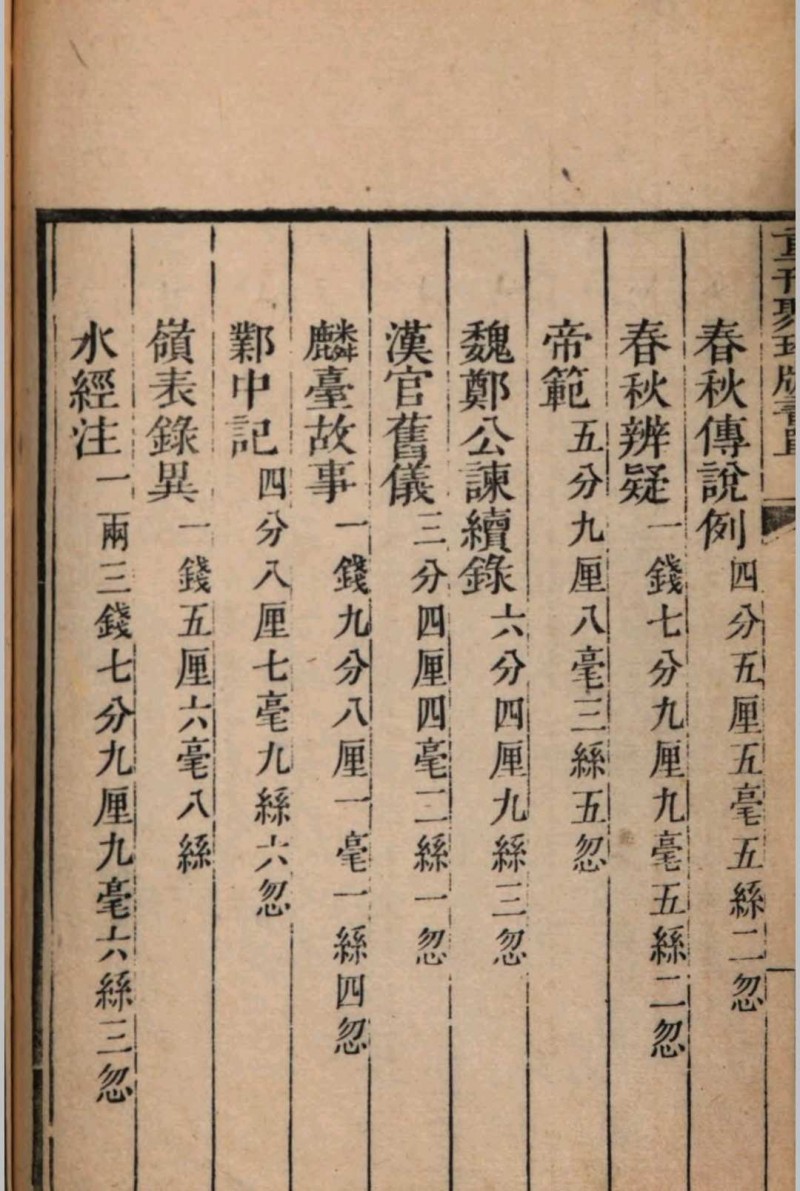 重刊聚珍版書單
春秋傳說例四分五厘五毫五絲二忽
春秋辨疑一錢七分九厘九毫五絲二忽
帝範五分九厘八毫三絲五忽
魏鄭公諫續錄六分四厘九絲三忽
漢官舊儀三分四厘四毫二絲一忽
麟臺故事一錢九分八厘一毫一絲四忽
鄴中記四分八厘七毫九絲六忽
嶺表錄異一錢五厘六毫八絲
水經注一兩三錢七分九厘九毫六絲三忽